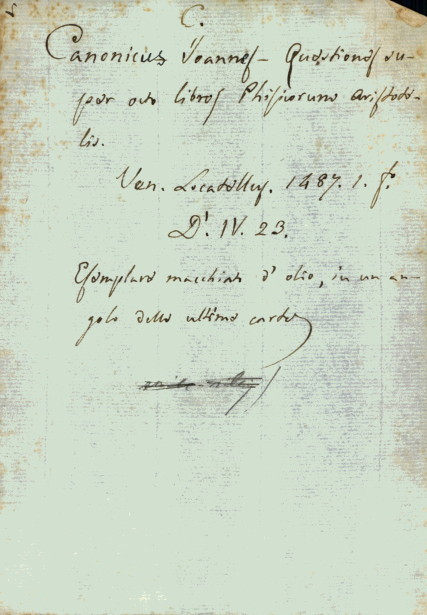 C.
Canonicus Joannes - Questiones su-
per octo libros Phisicorum Aristote-
lis.
Ven. Locatellus. 1487. 1. fo.
D'. IV. 23.
Esemplare macchiato d'olio, in un an-
golo delle ultime carte